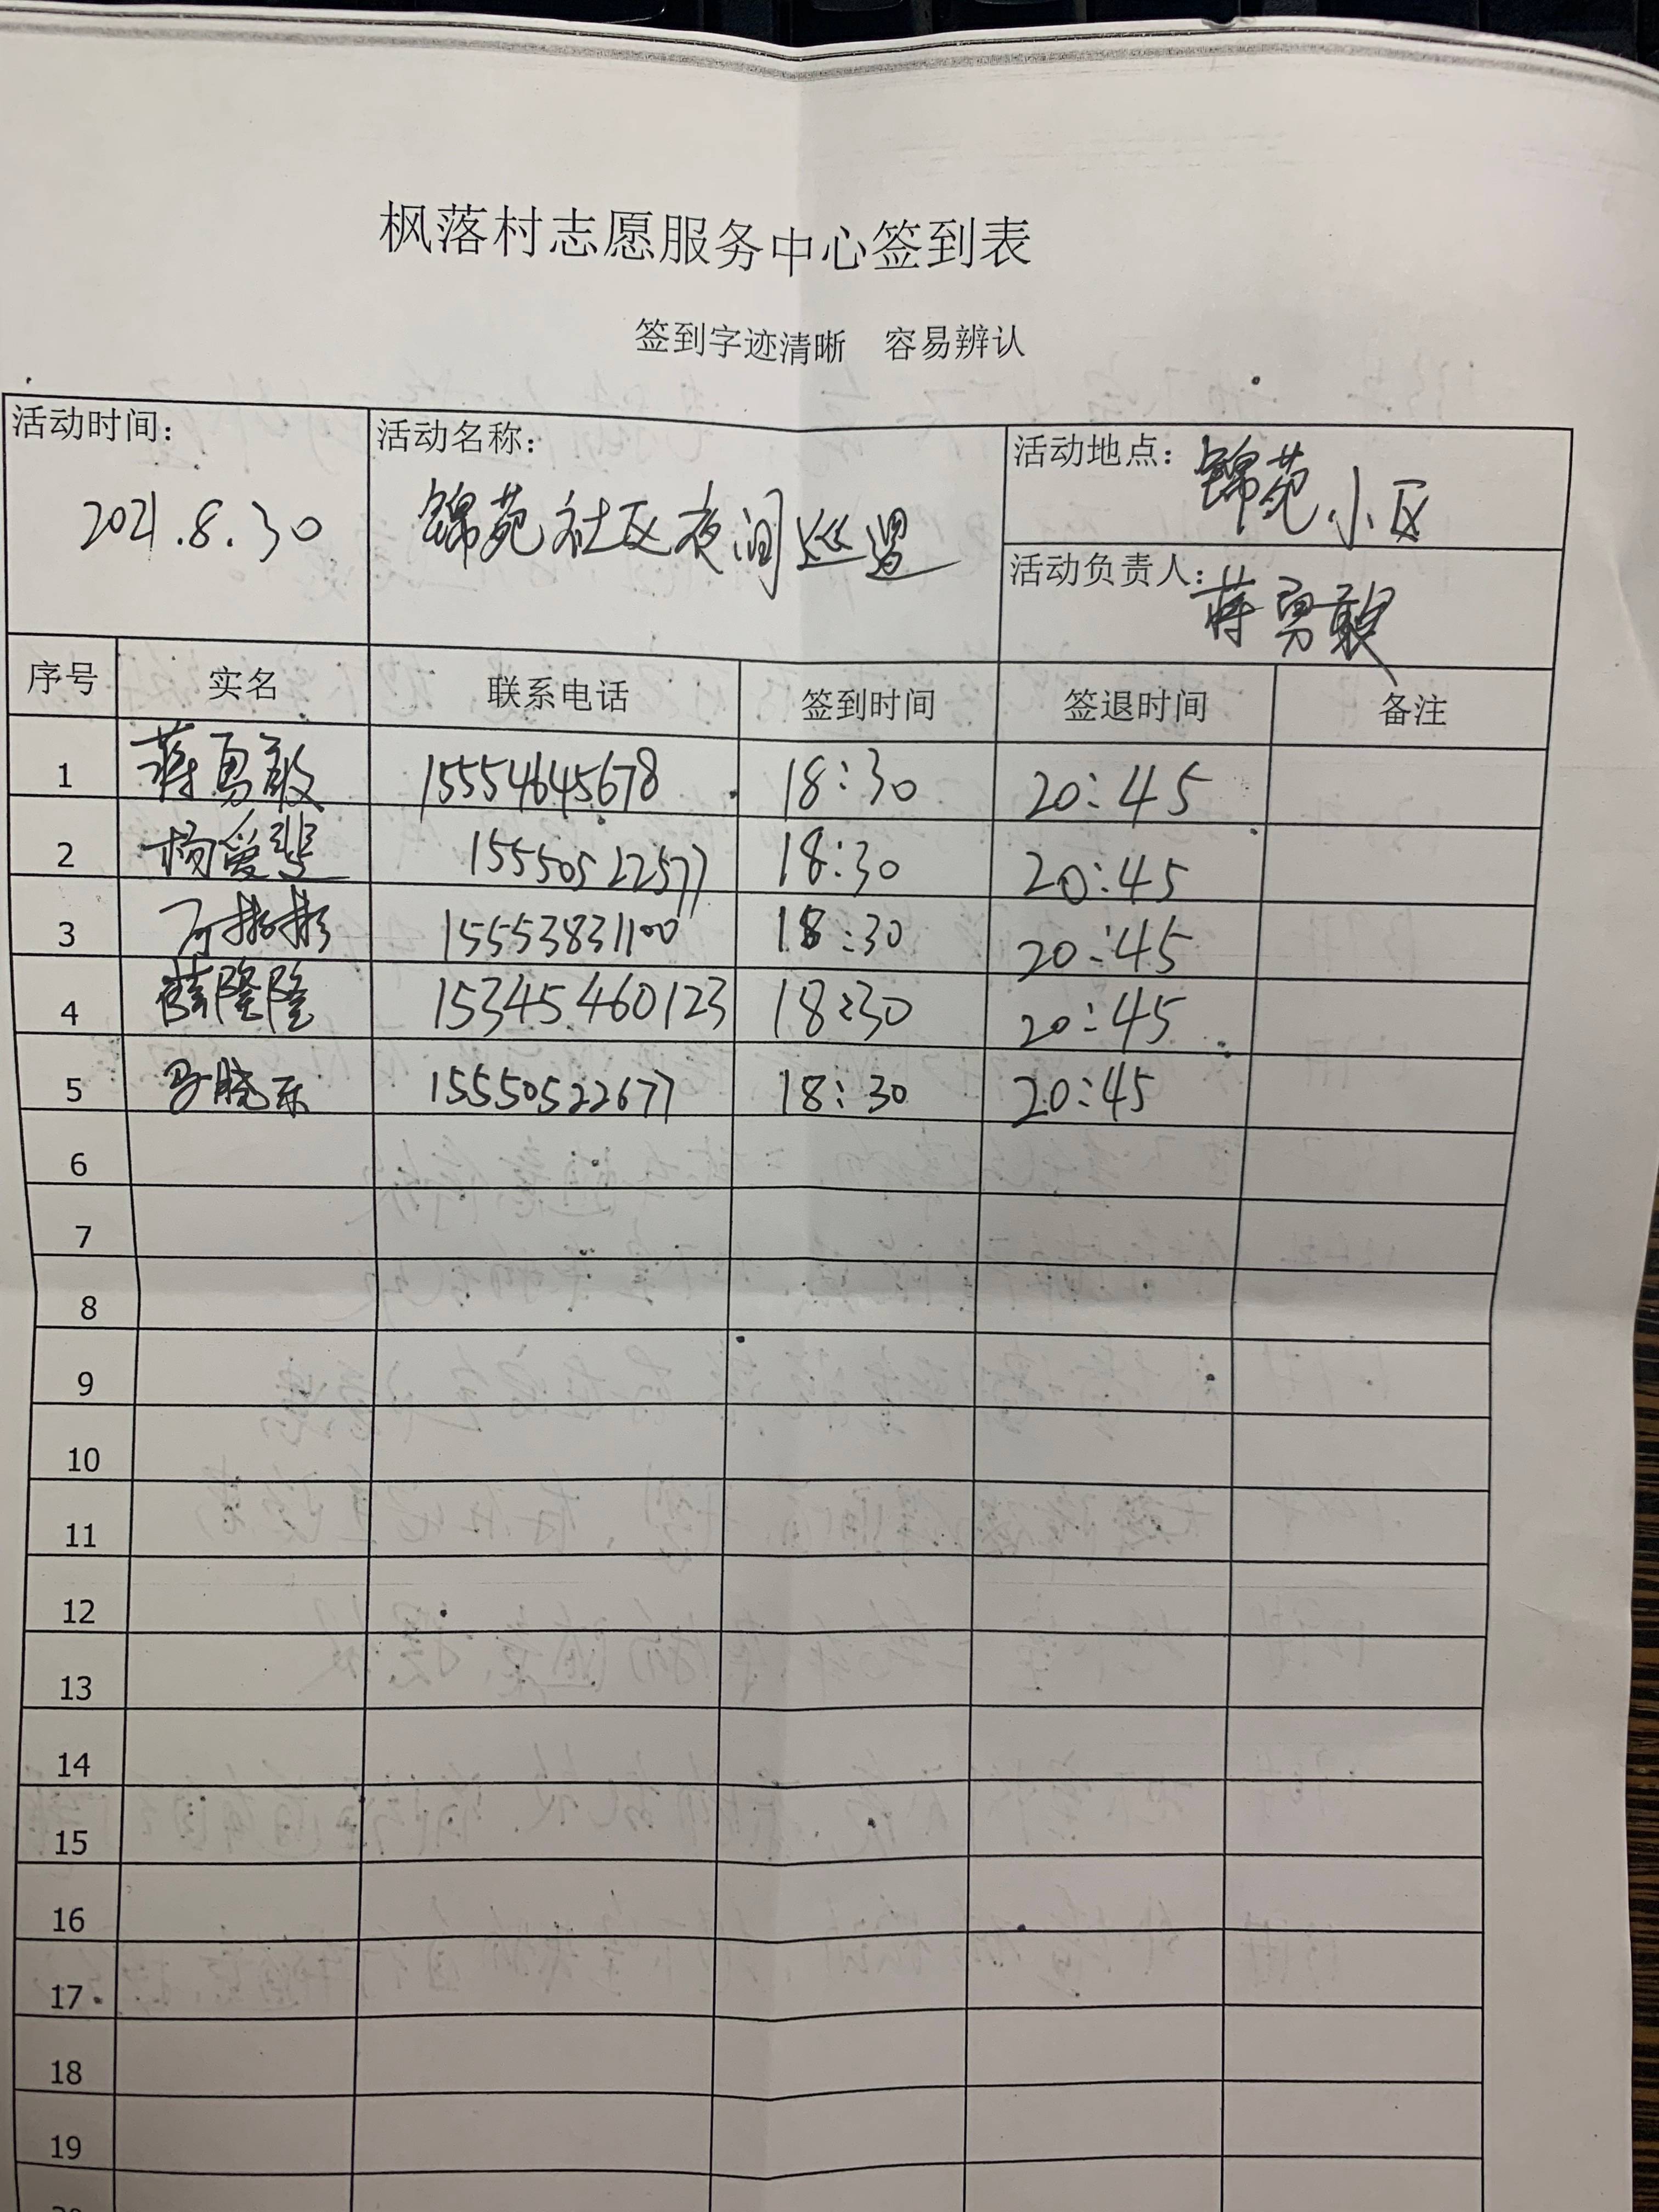 枫落村志愿服务中心签到表
签到字迹清晰 容易辨认
活动时间: 活动名称: 活动地点: 锦苑小区
2021.8.30 锦苑社区夜间巡逻
活动负责人: 蒋勇敢
序号 实名 联系电话 签到时间 签退时间 备注
1 蒋勇敢 15554645678 18:30 20:45
2 杨爱 15550522577 18:30 20:45
3 彬彬 15553831100 18:30 20:45
4 薛隆隆 15345460123 18:30 20:45
5 马晓东 15550522677 18:30 20:45
6
7
8
9
10
11
12
13
14
15
16
17
18
19